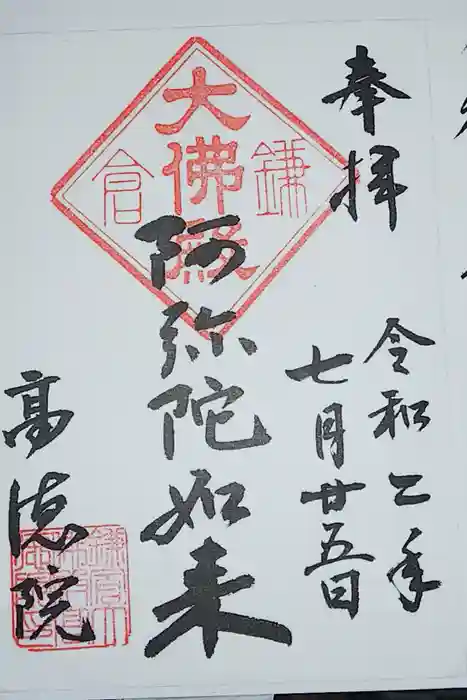 奉拝
令和二年
七月廿五日
大佛殿
鎌倉
阿弥陀如来
高徳院